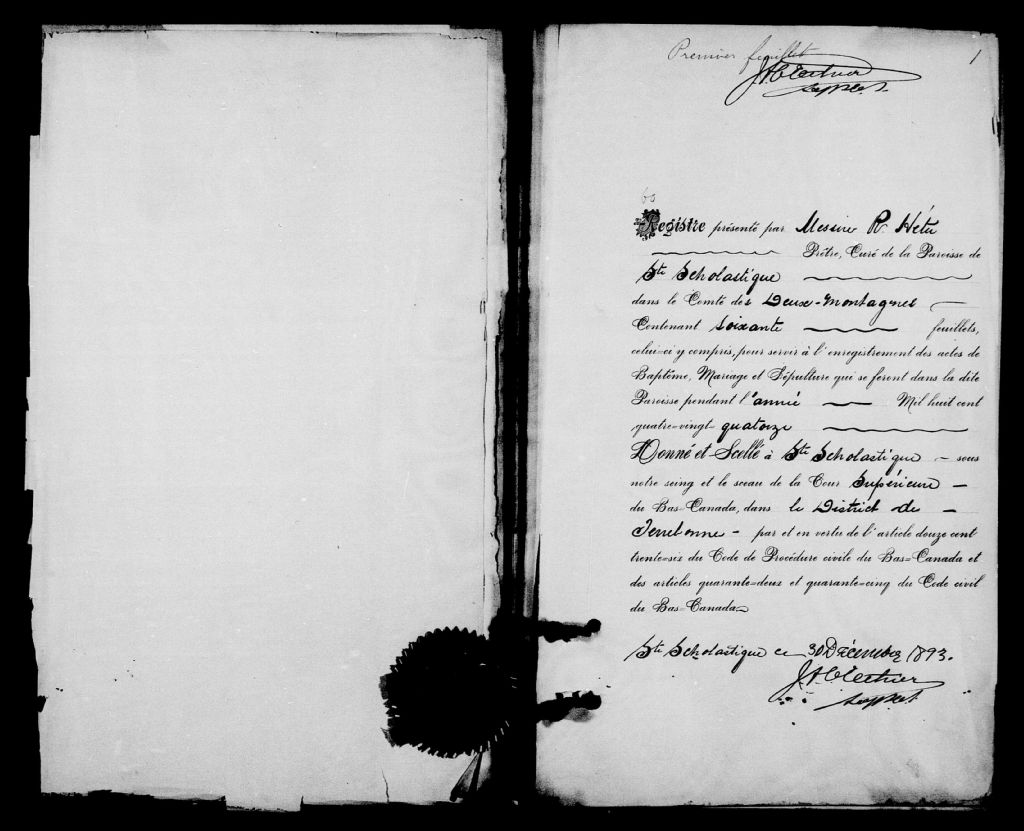 Premier feuillet 1
60
Registre présenté par Messire R. Hétu
Prêtre, Curé de la Paroisse de
Ste Scholastique
dans le Comté des Deux-Montagnes
Contenant soixante feuillets,
celui-ci y compris, pour servir à l'enregistrement des actes de
Baptême, Mariage et Sépulture qui se feront dans la dite
Paroisse pendant l'année Mil huit cent
quatre-vingt-quatorze
Donné et Scellé à Ste Scholastique - sous
notre seing et le sceau de la Cour Supérieure -
du Bas-Canada, dans le District de -
Terrebonne - par et en vertu de l'article douze cent
trente-six du Code de Procédure civile du Bas-Canada et
des articles quarante-deux et quarante-cinq du Code civil
du Bas-Canada.
Ste Scholastique ce 30 Décembre 1893.